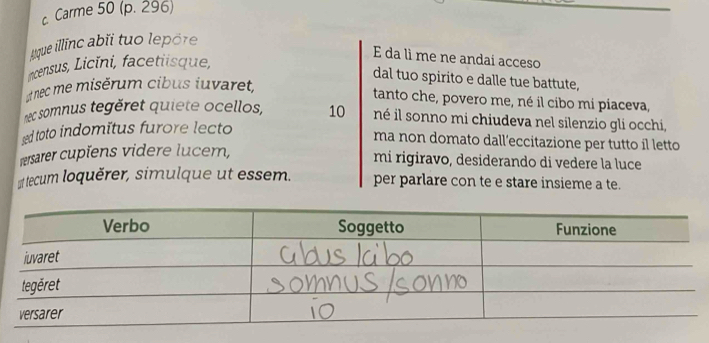 c. Carme 50 (p. 296)
Atque illinc abii tuo lepōre
incensus, Licini, facetiisque,
ut nec me misĕrum cibus iuvaret,
nec somnus tegĕret quiete ocellos, 10
sed toto indomĭtus furore lecto
versarer cupĭens videre lucem,
ut tecum loquĕrer, simulque ut essem.
E da lì me ne andai acceso
dal tuo spirito e dalle tue battute,
tanto che, povero me, né il cibo mi piaceva,
né il sonno mi chiudeva nel silenzio gli occhi,
ma non domato dall'eccitazione per tutto il letto
mi rigiravo, desiderando di vedere la luce
per parlare con te e stare insieme a te.
Verbo Soggetto Funzione
iuvaret cibus /cibo
tegĕret somnus /sonno
versarer io